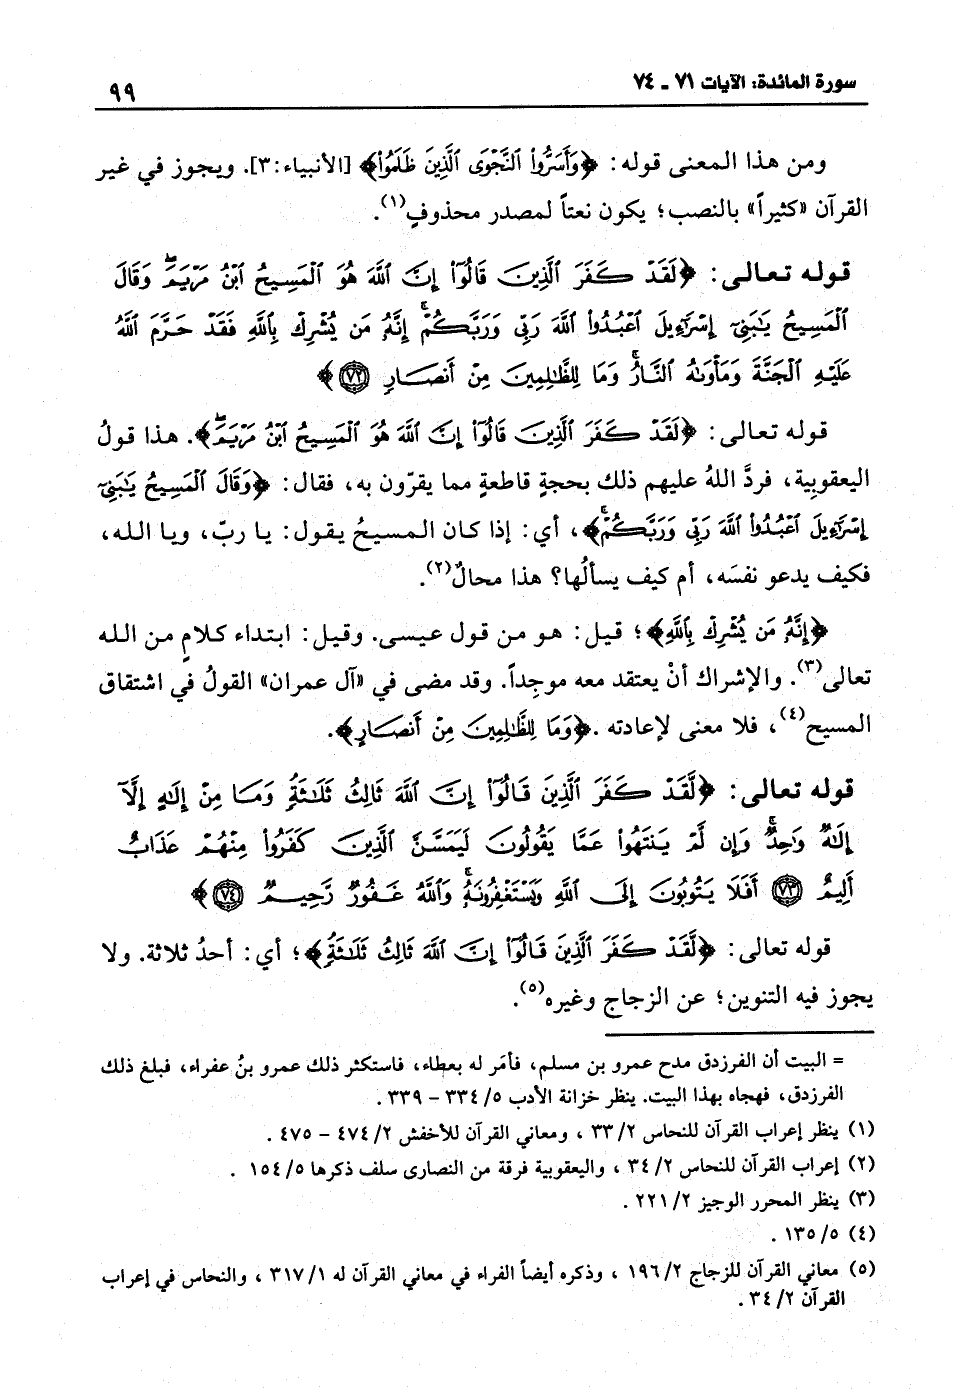 سورة المائدة: الآيات ٧١ ـ ٧٤
٩٩
ومن هذا المعنى قوله: ﴿وَأَسَرُّوا۟ ٱلنَّجْوَى ٱلَّذِينَ ظَلَمُوا۟﴾ [الأنبياء:٣]. ويجوز في غير
القرآن «كثيراً» بالنصب؛ يكون نعتاً لمصدر محذوفٍ(١).
قوله تعالى: ﴿لَقَدْ كَفَرَ ٱلَّذِينَ قَالُوٓا۟ إِنَّ ٱللَّهَ هُوَ ٱلْمَسِيحُ ٱبْنُ مَرْيَمَۖ وَقَالَ
ٱلْمَسِيحُ يَٰبَنِىٓ إِسْرَٰٓءِيلَ ٱعْبُدُوا۟ ٱللَّهَ رَبِّى وَرَبَّكُمْۚ إِنَّهُۥ مَن يُشْرِكْ بِٱللَّهِ فَقَدْ حَرَّمَ ٱللَّهُ
عَلَيْهِ ٱلْجَنَّةَ وَمَأْوَىٰهُ ٱلنَّارُۖ وَمَا لِلظَّٰلِمِينَ مِنْ أَنصَارٍ ٧٢﴾
قوله تعالى: ﴿لَقَدْ كَفَرَ ٱلَّذِينَ قَالُوٓا۟ إِنَّ ٱللَّهَ هُوَ ٱلْمَسِيحُ ٱبْنُ مَرْيَمَۖ﴾. هذا قولُ
اليعقوبية، فردَّ اللهُ عليهم ذلك بحجةٍ قاطعةٍ مما يقرّون به، فقال: ﴿وَقَالَ ٱلْمَسِيحُ يَٰبَنِىٓ
إِسْرَٰٓءِيلَ ٱعْبُدُوا۟ ٱللَّهَ رَبِّى وَرَبَّكُمْۚ﴾، أي: إذا كان المسيحُ يقول: يا ربّ، ويا الله،
فكيف يدعو نفسَه، أم كيف يسألُها؟ هذا محالٌ(٢).
﴿إِنَّهُۥ مَن يُشْرِكْ بِٱللَّهِ﴾؛ قيل: هو من قول عيسى. وقيل: ابتداء كلامٍ من الله
تعالى(٣). والإشراك أنْ يعتقد معه موجِداً. وقد مضى في «آل عمران» القولُ في اشتقاق
المسيح(٤)، فلا معنى لإعادته. ﴿وَمَا لِلظَّٰلِمِينَ مِنْ أَنصَارٍ﴾.
قوله تعالى: ﴿لَّقَدْ كَفَرَ ٱلَّذِينَ قَالُوٓا۟ إِنَّ ٱللَّهَ ثَالِثُ ثَلَٰثَةٍۘ وَمَا مِنْ إِلَٰهٍ إِلَّآ
إِلَٰهٌ وَٰحِدٌۚ وَإِن لَّمْ يَنتَهُوا۟ عَمَّا يَقُولُونَ لَيَمَسَّنَّ ٱلَّذِينَ كَفَرُوا۟ مِنْهُمْ عَذَابٌ
أَلِيمٌ ٧٣ أَفَلَا يَتُوبُونَ إِلَى ٱللَّهِ وَيَسْتَغْفِرُونَهُۥۚ وَٱللَّهُ غَفُورٌ رَّحِيمٌ ٧٤﴾
قوله تعالى: ﴿لَّقَدْ كَفَرَ ٱلَّذِينَ قَالُوٓا۟ إِنَّ ٱللَّهَ ثَالِثُ ثَلَٰثَةٍۘ﴾؛ أي: أحدُ ثلاثة. ولا
يجوز فيه التنوين؛ عن الزجاج وغيره(٥).
= البيت أن الفرزدق مدح عمرو بن مسلم، فأمَر له بعطاء، فاستكثر ذلك عمرو بنُ عفراء، فبلغ ذلك
الفرزدق، فهجاه بهذا البيت. ينظر خزانة الأدب ٥/ ٣٣٤ – ٣٣٩ .
(١) ينظر إعراب القرآن للنحاس ٢/ ٣٣ ، ومعاني القرآن للأخفش ٢/ ٤٧٤ – ٤٧٥ .
(٢) إعراب القرآن للنحاس ٢/ ٣٤ ، واليعقوبية فرقة من النصارى سلف ذكرها ٥/ ١٥٤ .
(٣) ينظر المحرر الوجيز ٢/ ٢٢١ .
(٤) ٥/ ١٣٥ .
(٥) معاني القرآن للزجاج ٢/ ١٩٦ ، وذكره أيضاً الفراء في معاني القرآن له ١/ ٣١٧ ، والنحاس في إعراب
القرآن ٢/ ٣٤ .